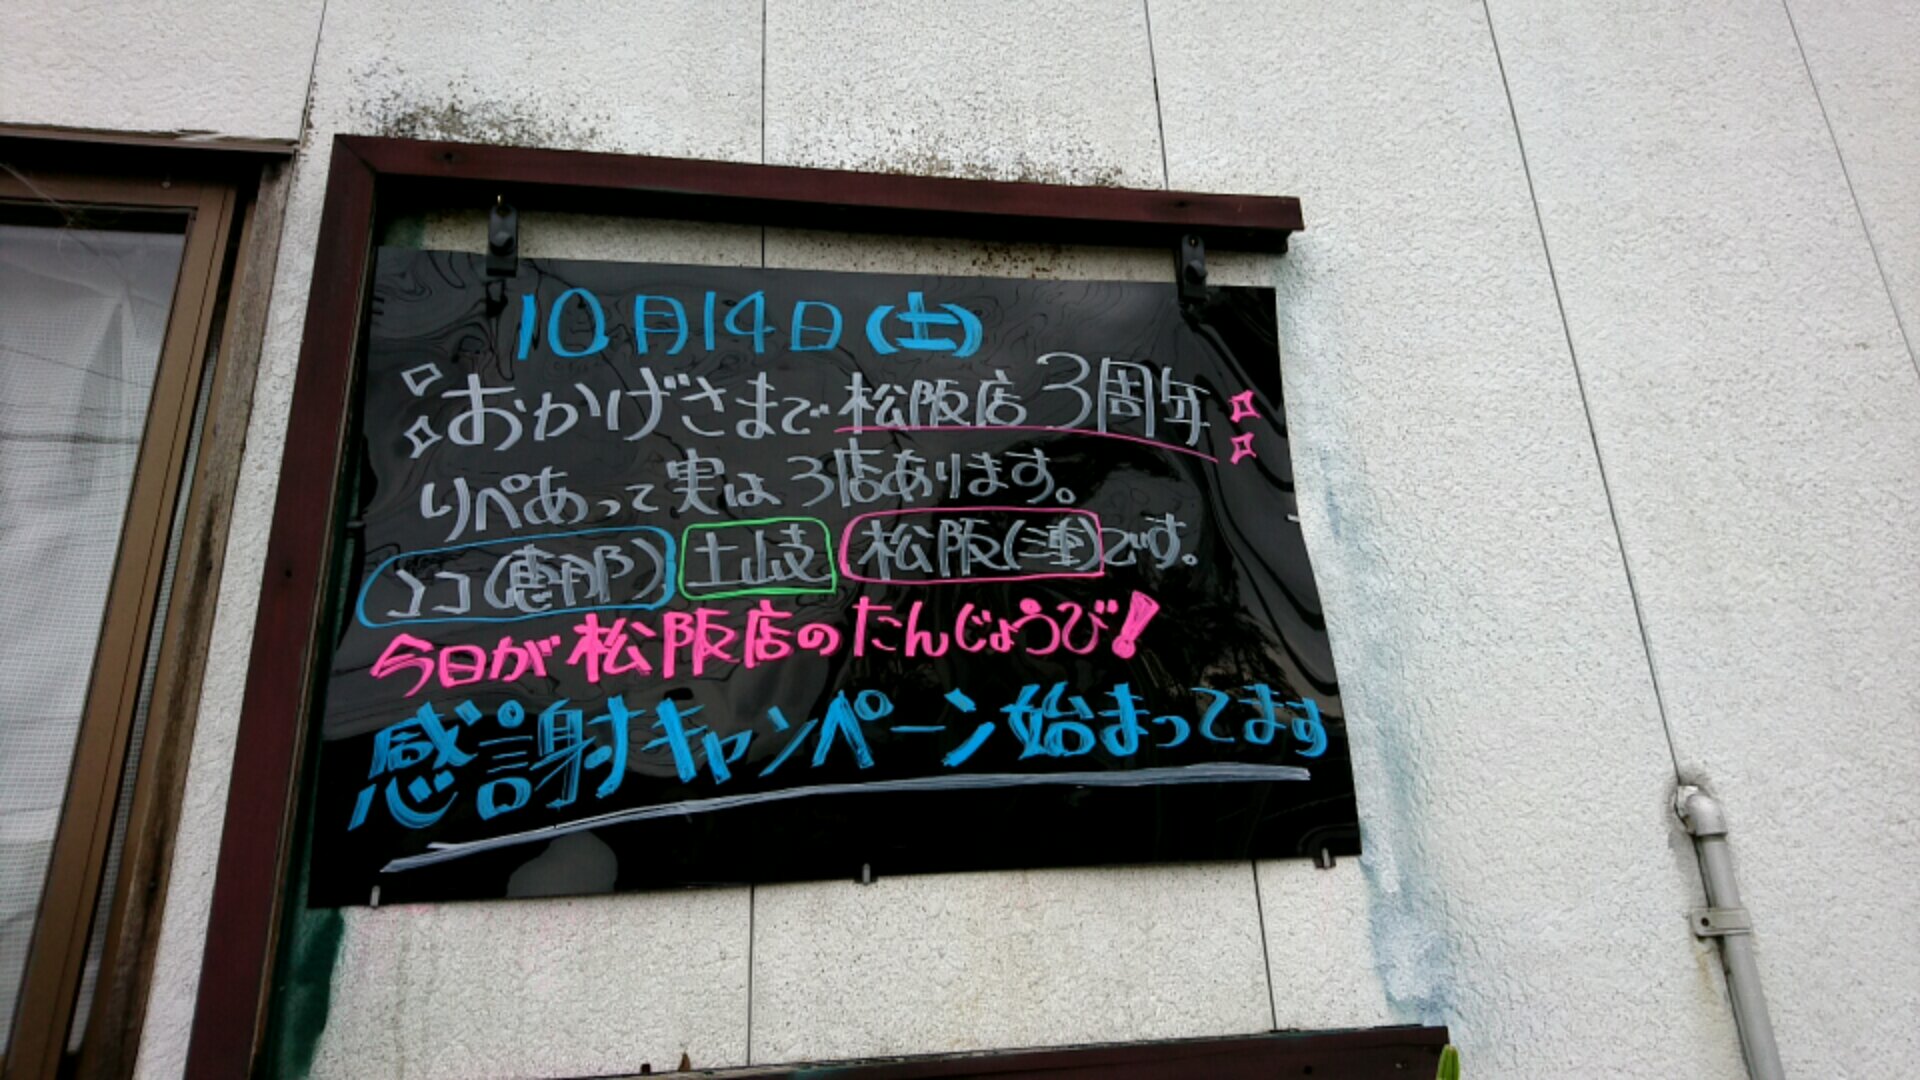 10月14日(土)
おかげさまで松阪店3周年
りぺあって実は3店あります。
ココ(恵那) 土岐 松阪(三重)です。
今日が松阪店のたんじょうび!
感謝キャンペーン始まってます